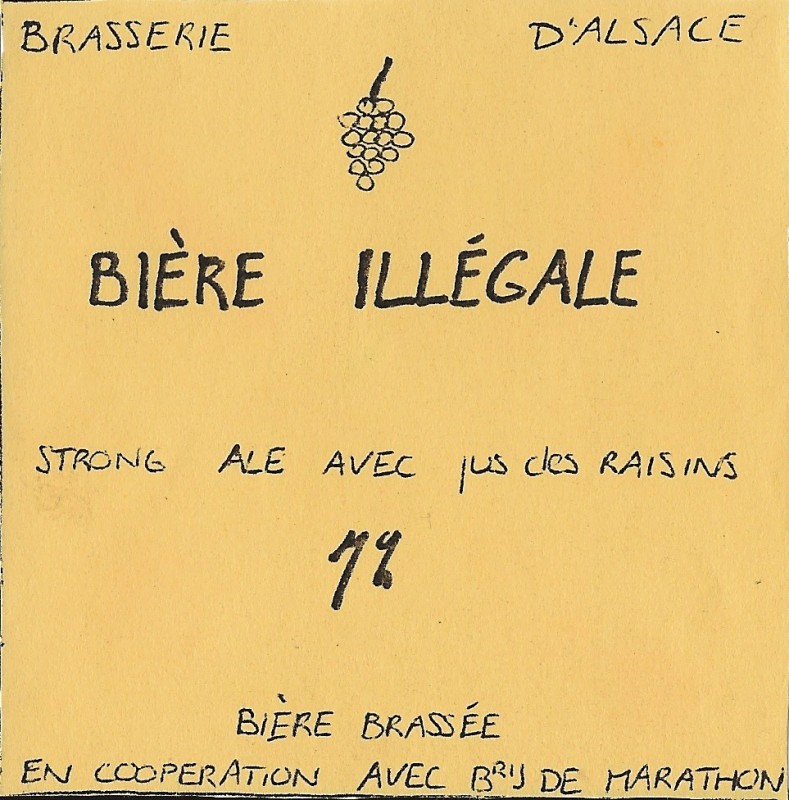 BRASSERIE D'ALSACE
BIÈRE ILLÉGALE
STRONG ALE AVEC jus des RAISINS
BIÈRE BRASSÉE
EN COOPERATION AVEC BRIJ DE MARATHON